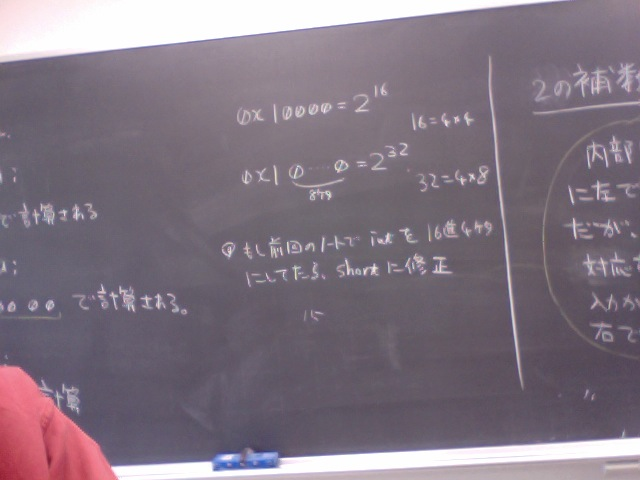 で計算される
0000 で計算される。
計算
0x10000 = 2^16
16=4*4
0x10…0 = 2^32
8個
32=4*8
もし前回のノートで intを 16進4桁
にしてたら、shortに修正
15
2の補数
内部
に左で
だが、
対応
入力が
右で